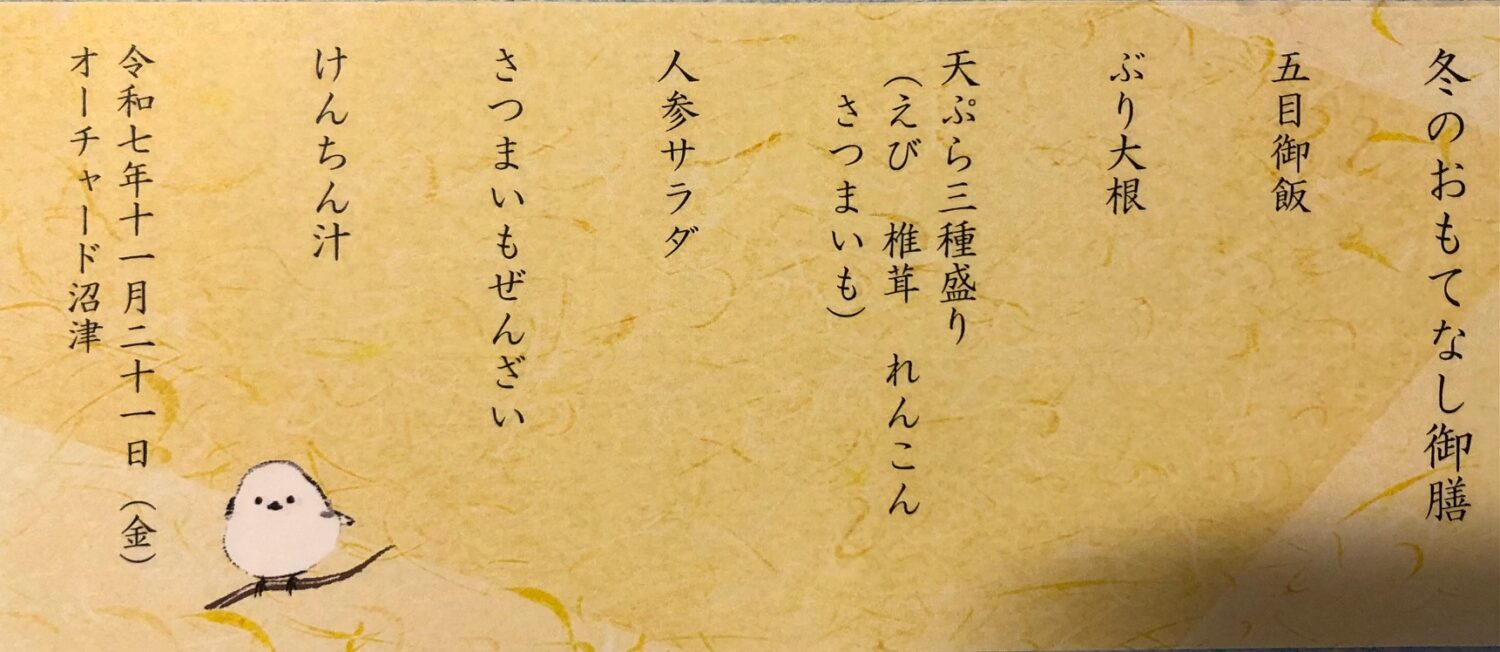 冬のおもてなし御膳
五目御飯
ぶり大根
天ぷら三種盛り
（えび　椎茸　れんこん
さつまいも）
人参サラダ
さつまいもぜんざい
けんちん汁
令和七年十一月二十一日（金）
オーチャード沼津